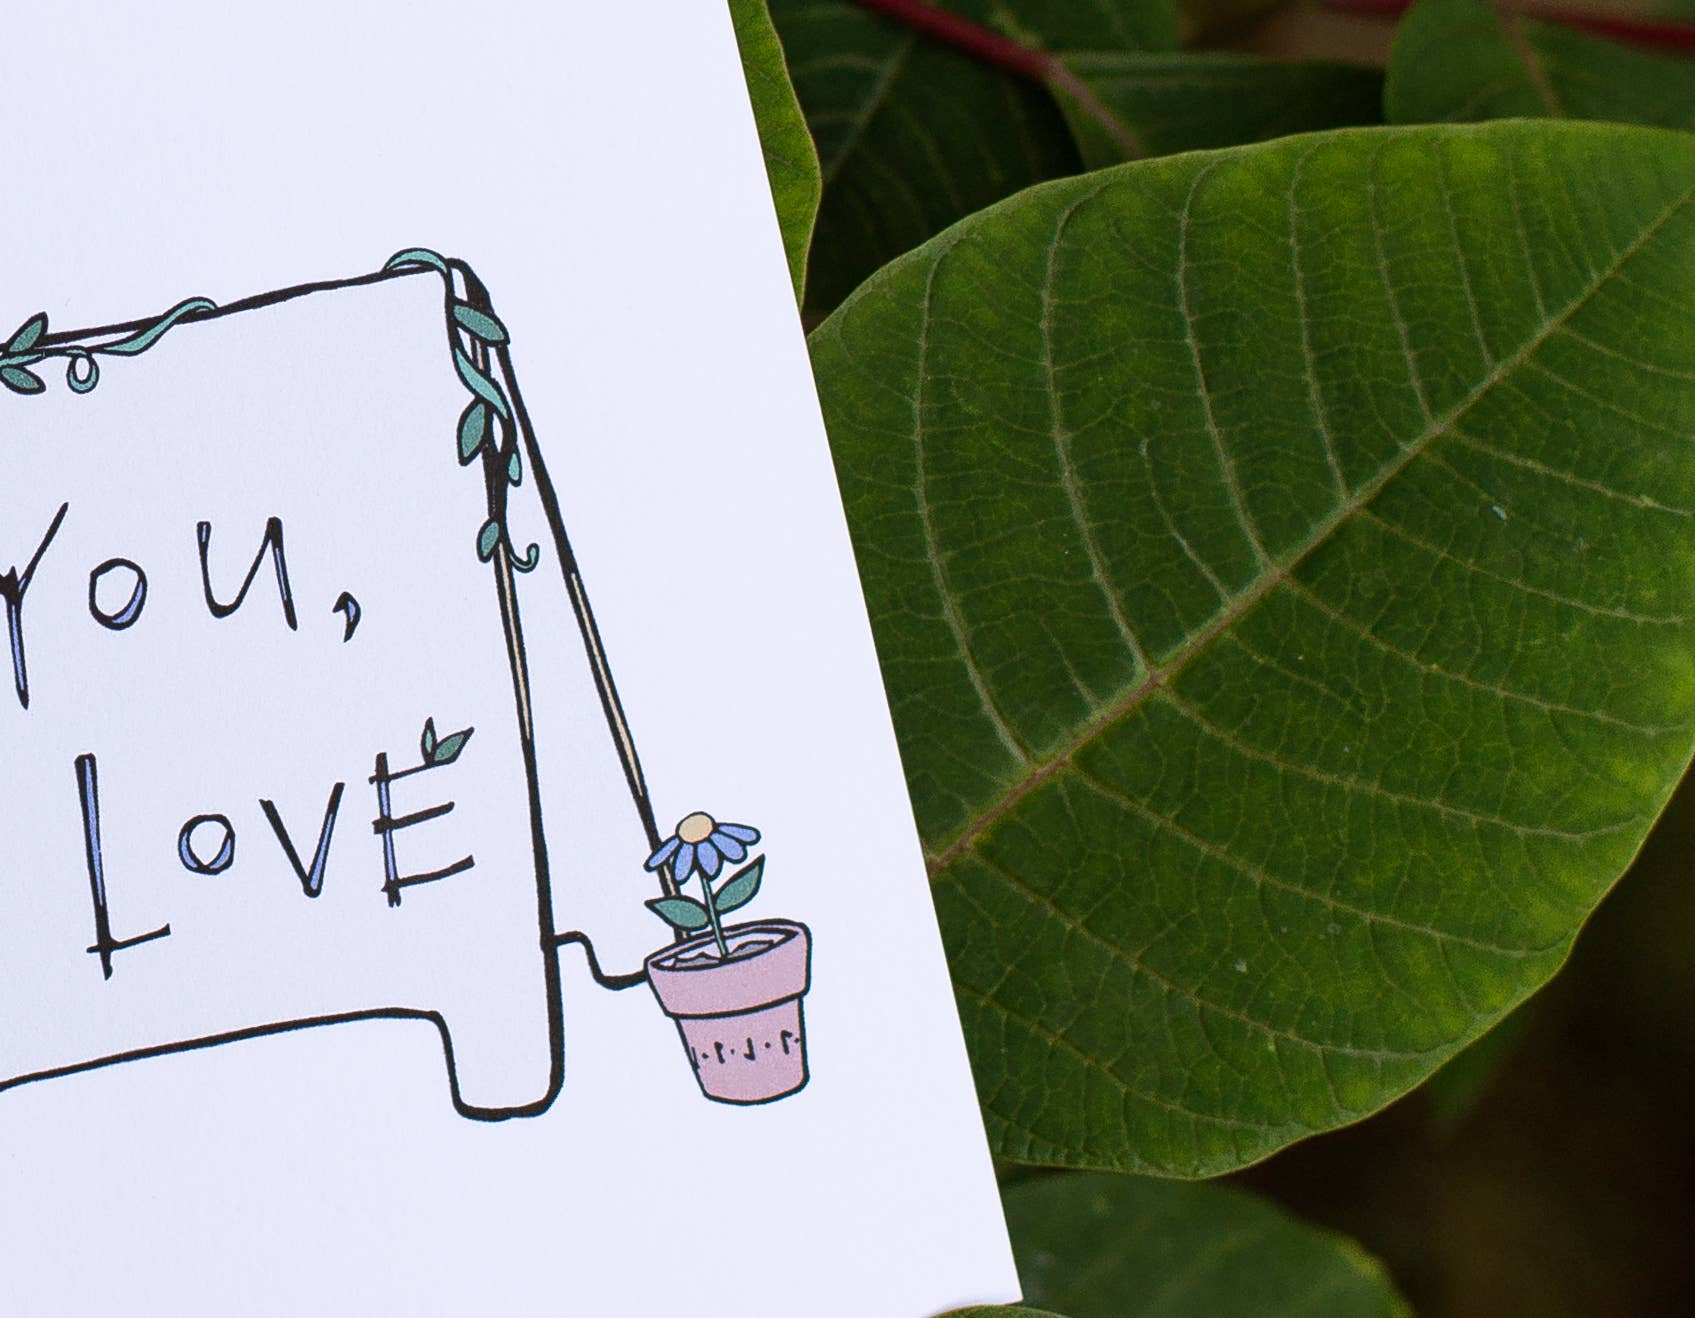 YOU,
LOVE